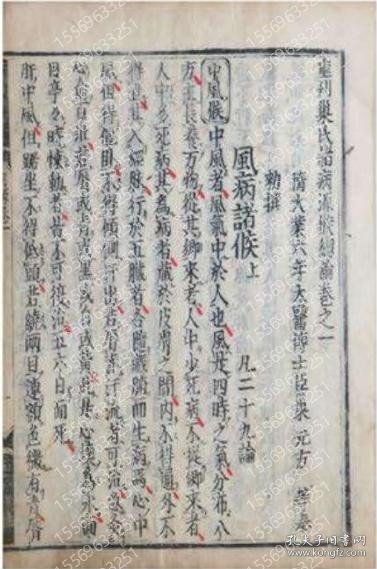 重刊巢氏諸病源候總論卷之一
隋大業六年太醫博士臣巢元方 等奉
勅撰
風病諸候上 凡二十九論
中風候 中風者風氣中於人也風是四時之氣分布八
方主長養萬物從其鄉來者人中少死病不從鄉來者
人中多死病其為病者藏於皮膚之間內不得通外不
得泄其入經脈行於五臟者各隨臟腑而生病焉心中
風但得偃臥不得傾側汗出若唇赤汗流者可治急灸
心俞百壯若唇或青或黑或白或黃此是心壞為水面
目亭亭時悚動者皆不可復治五六日而死
肝中風但踞坐不得低頭若繞兩目連額色微有青唇
15569633251
孔夫子旧书网